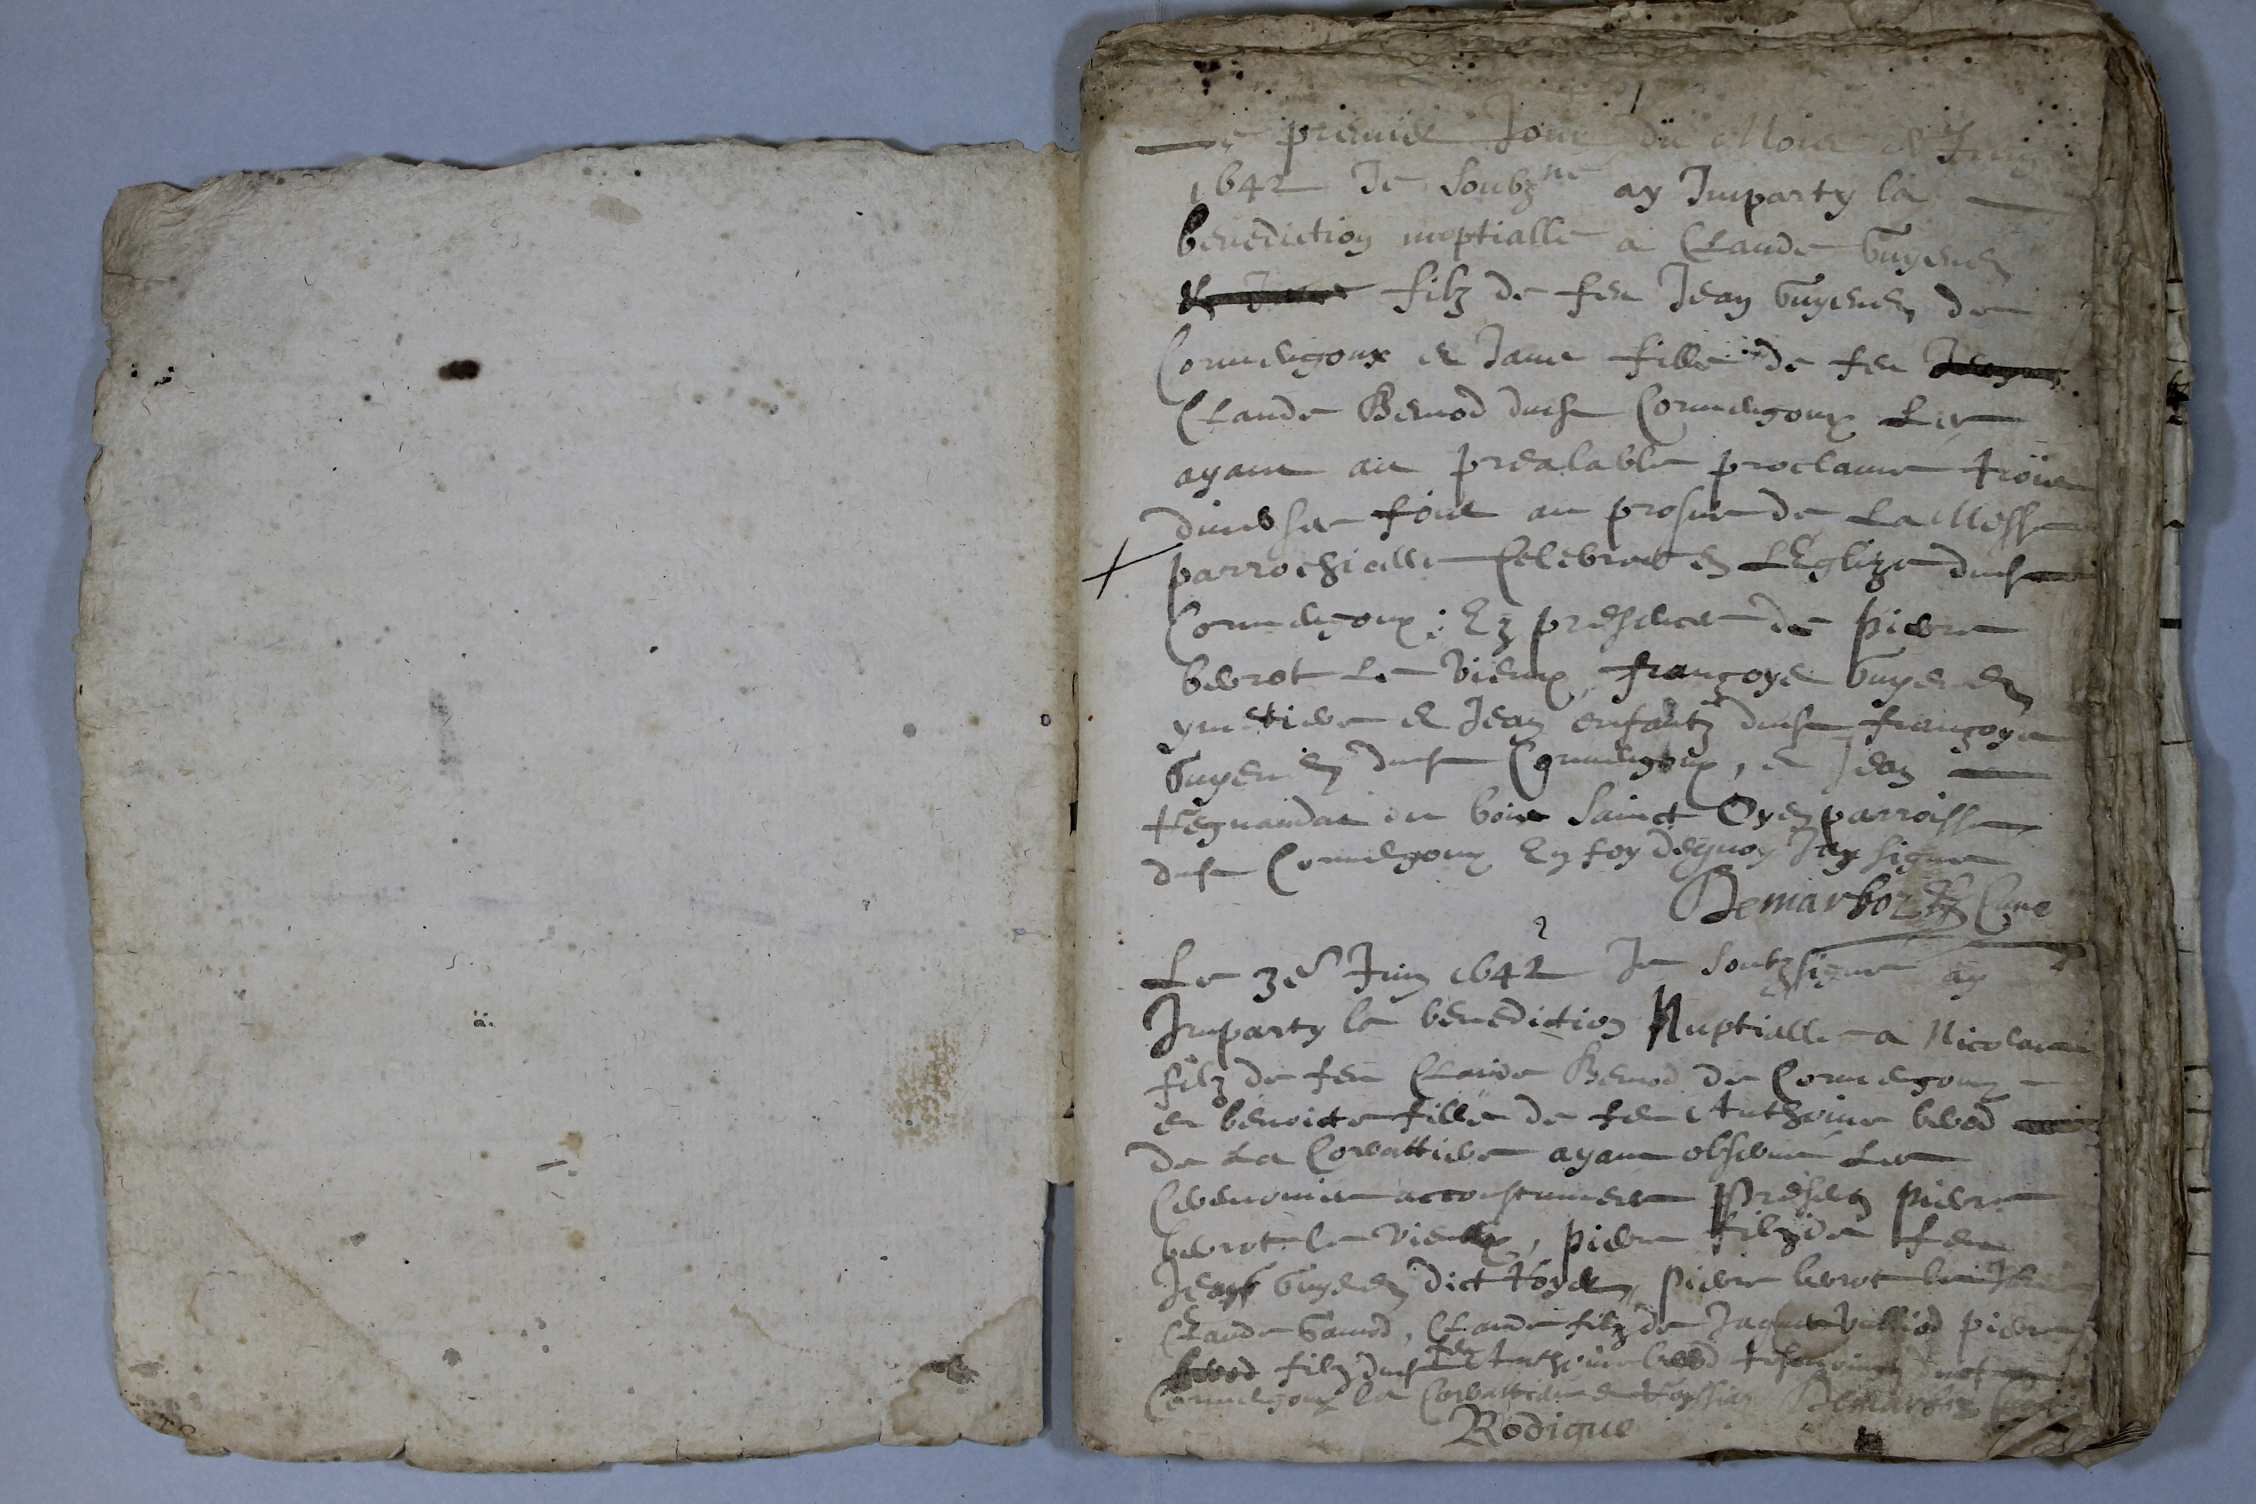 Le premier Jour du Mois de Juin
1642 Je soubzne ay Imparty la
benediction nuptialle a Claude Guyenez
filz de feu Jean Guyenez de
Cormengoux et Jane fille de feu
Claude Bernod dudt Cormengoux Les
ayant au prealable proclamé trois
diverses fois au prosne de La Messe
parrochialle Celebree en LEglize dudt
Cormengoux : Ez presences de pierre
bevrot Le vieux, françoys Guyenez
pierre et Jean enfantz dudt françoys
Guyenez dudt Cormengoux, et Jean
Regnaudat du bois Sainct Oyen parroisse
dudt Cormengoux En foy dequoy Jay signe
Demarboz Cure
Le 3e Juin 1642 Je soubzsigne ay
Imparty la benediction Nuptialle a Nicolas
filz de feu Claude Bernod de Cormengoux
et benoicte fille de feu Anthoine bevod
de La Corvattiere ayant observé Les
Ceremonies accoustumees Presentz pierre
bevrot le vieux, pierre filz de feu
Jean Guyenez dict Royer, pierre bevrot le
Claude Gamod, Claude filz de Jaques Villiod pierre
bevod filz dudt feu Anthoine bevod
Cormengoux la Corvattiere et Demarboz Cure
Rodigue